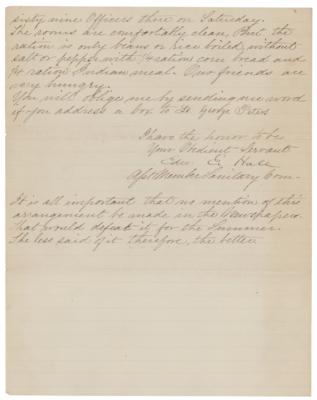 sixty nine Officers there on Saturday.
The rooms are comfortably clean, But, the
ration is only beans or rice boiled, without
salt or pepper with ½ ration corn bread and
ration Indian meal. Our friends are
very hungry.
You will oblige me by sending me word
if you address a box to Lt. George
I have the honor to be
Your Obedient Servant
Edw. E. Hale
Asst Member Sanitary Com—
It is all important that no mention of this
arrangement be made in the Newspapers.
That would defeat it for the Summer.
The less said of it therefore, the better